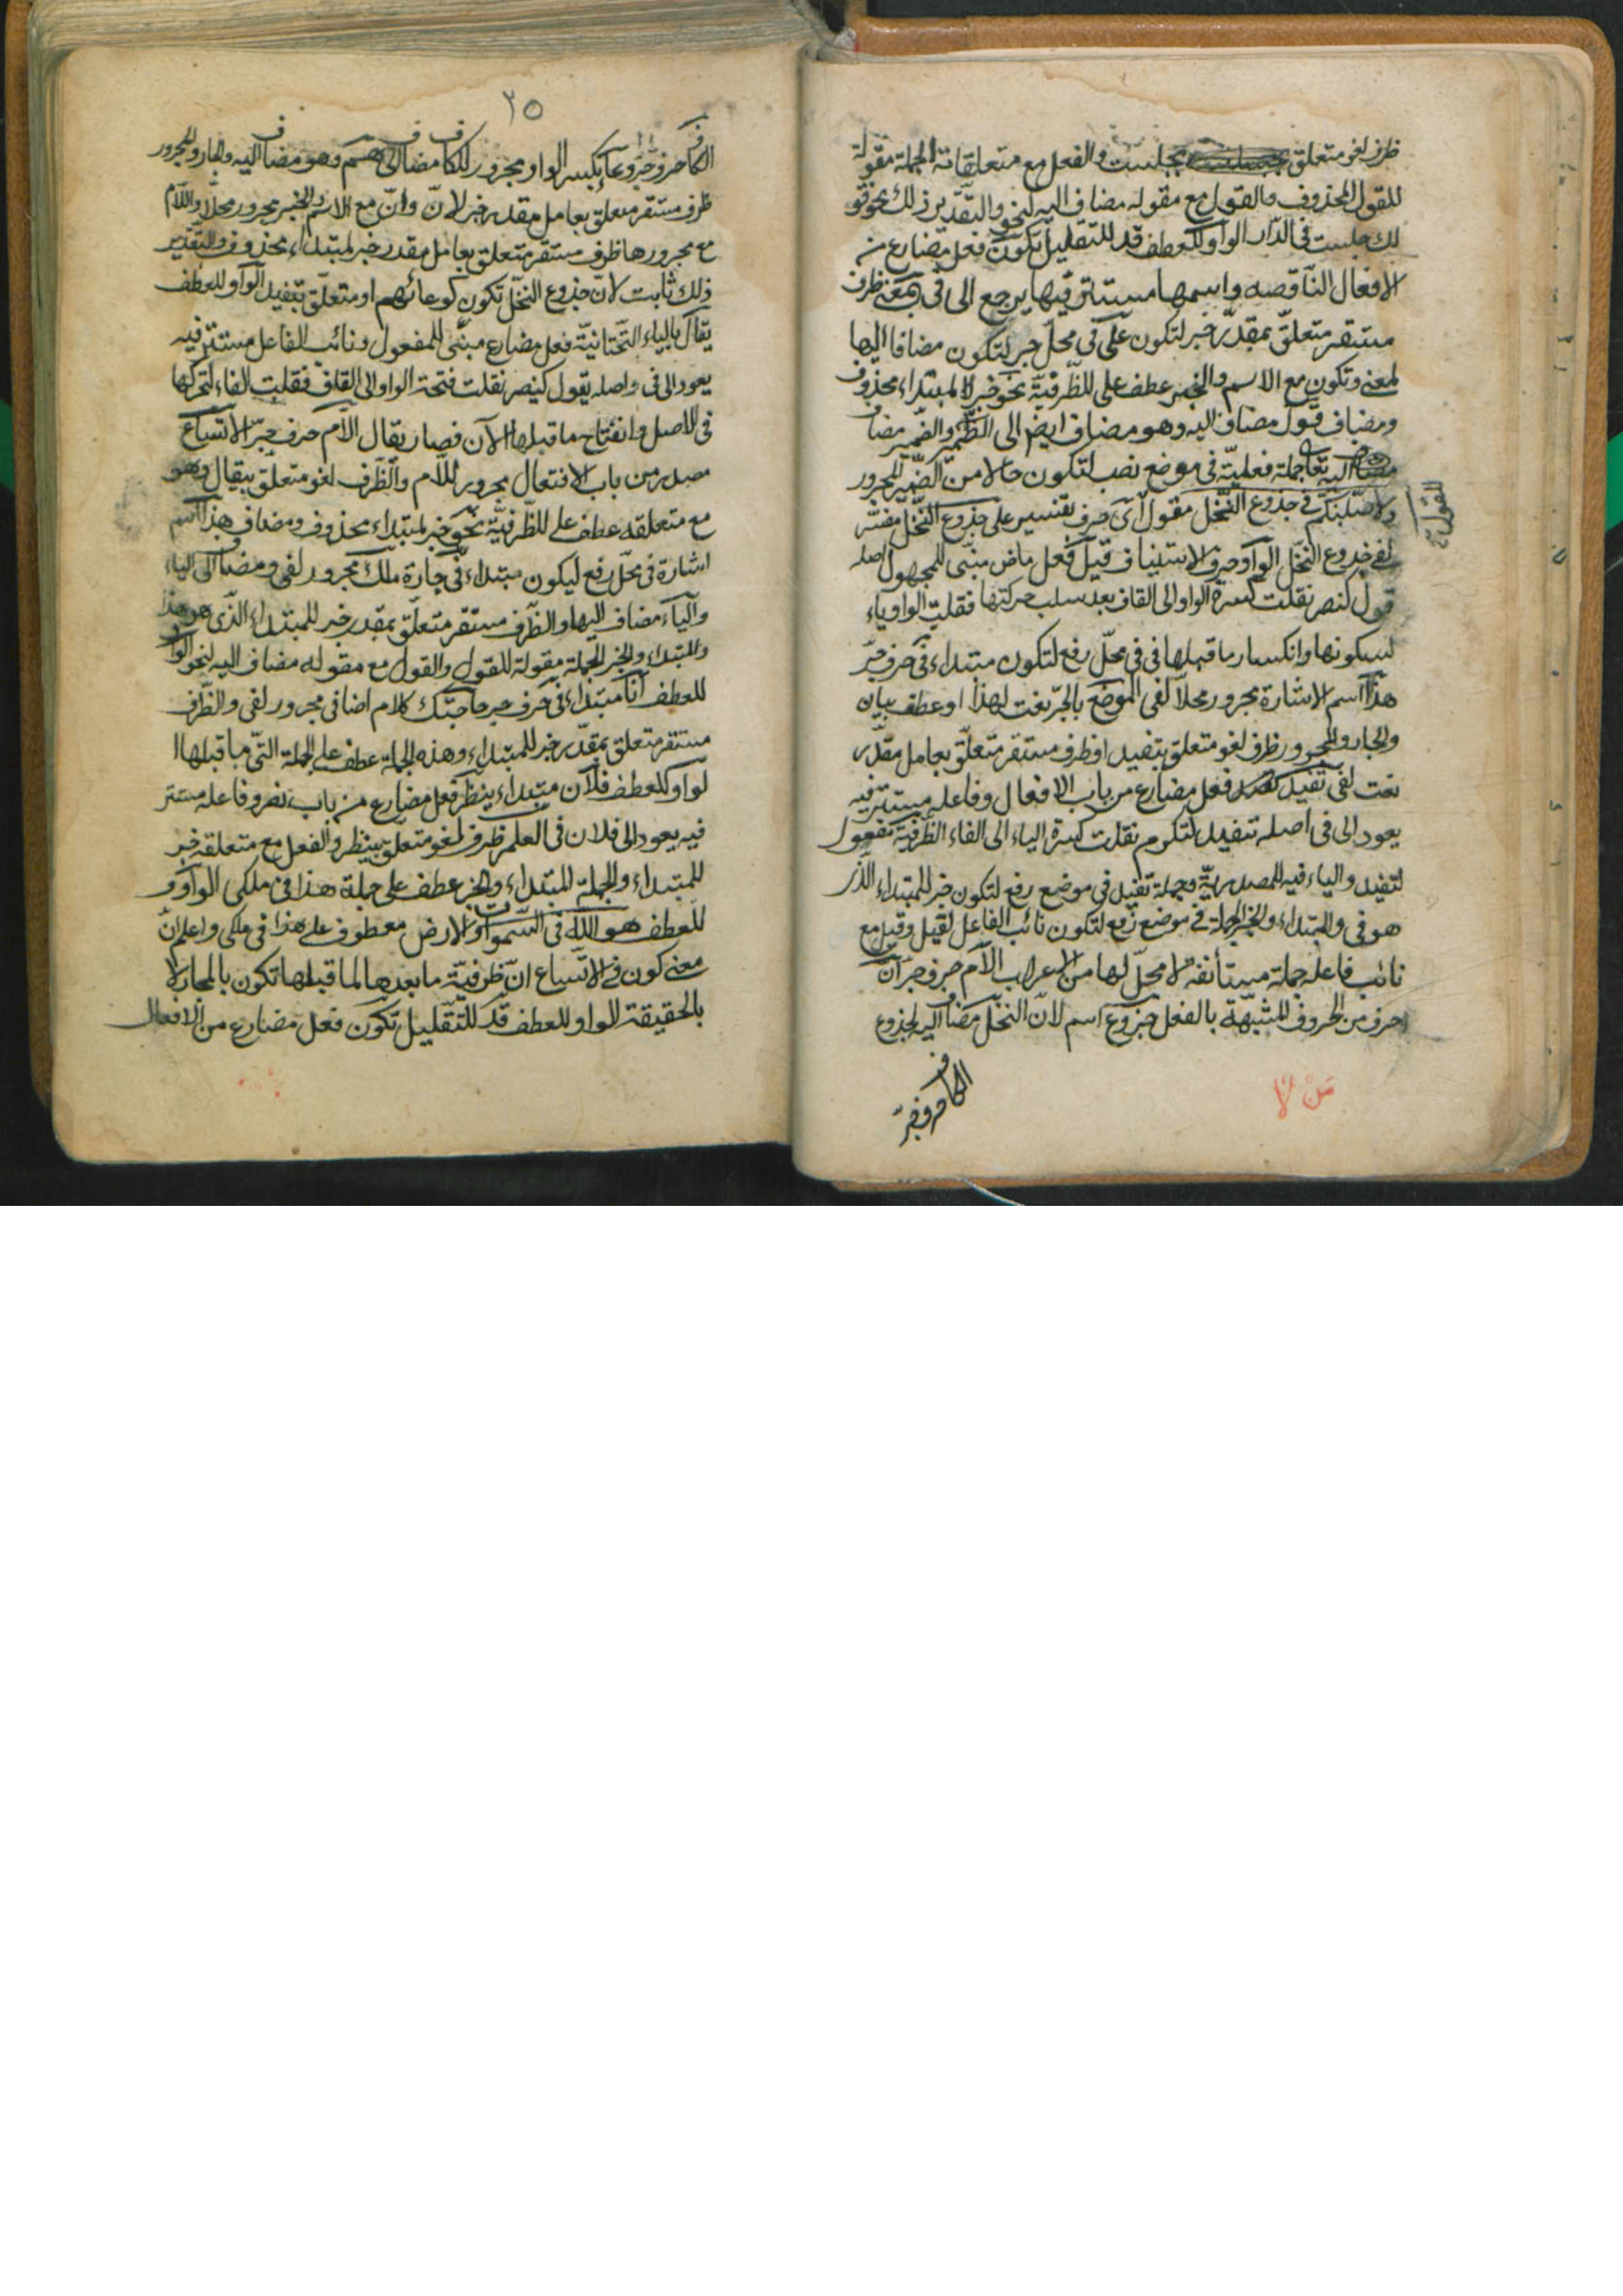 ظرف لغو متعلق بجلست والفعل مع متعلقاته الجملة مقولة
للقول المحذوف والقول مع مقوله مضاف اليه لنحو والتقدير ذلك نحو قو
لك جلست في الدار الواو للعطف قد للتقليل تكون فعل مضارع من
الافعال الناقصه واسمها مستتر فيها يرجع الى في بمعنى ظرف
مستقر متعلق بمقدر خبر لتكون على في محل جر لتكون مضافا اليها
لمعنى وتكون مع الاسم والخبر عطف على للظرفية نحو خبر لمبتداء محذوف
ومضاف قول مضاف اليه وهو مضاف ايضا الى الضمير والضمير مضاف
اليه تعا جملة فعلية في موضع نصب لتكون حالا من الضمير المجرور
ولاصلبنكم في جذوع النخل مقول اى حرف تفسير على جذوع النخل مفسر
لفي جذوع النخل الواو حرف الاستيناف قيل فعل ماض مبنى للمجهول اصله
قول لنصر نقلت كسرة الواو الى القاف بعد سلب حركتها فقلبت الواو ياء
لسكونها وانكسار ما قبلها في في محل رفع لتكون مبتداء في حرف جر
هذا اسم الاشارة مجرور محلا لفى الموضع بالجر نعت لهذا او عطف بيان
والجار والمجرور ظرف لغو متعلق بتفيد او ظرف مستقر متعلق بعامل مقدر
نعت لفى تفيد فعل مضارع من باب الافعال وفاعله مستتر فيه
يعود الى في اصله تفيد لتكرم نقلت كسرة الياء الى الفاء الظرفية مفعول
لتفيد والياء فيه للمصدرية وجملة تفيد في موضع رفع لتكون خبر للمبتداء الذى
هو في والمبتداء والخبر الجملة في موضع رفع لتكون نائب الفاعل لقيل وقيل مع
نائب فاعله جملة مستأنفة لا محل لها من الاعراب اللام حرف جر ان
حرف من الحروف المشبهة بالفعل جذوع اسم لان النخل مضاف اليه لجذوع
الكاف حرف جر
من لا
للقول
٢٥
الكاف حرف جر وعاء بكسر الواو مجرور للكاف مضاف الى هم وهو مضاف اليه والجار والمجرور
ظرف مستقر متعلق بعامل مقدر خبر لان وان مع الاسم والخبر مجرور محلا واللام
مع مجرورها ظرف مستقر متعلق بعامل مقدر خبر لمبتداء محذوف والتقدير
ذلك ثابت لان جذوع النخل تكون كوعائهم او متعلق بتفيد الواو للعطف
يقال بالياء التحتانية فعل مضارع مبنى للمفعول ونائب الفاعل مستتر فيه
يعود الى في واصله يقول كينصر نقلت فتحة الواو الى القاف فقلبت الفاء لتحركها
في الاصل وانفتاح ما قبلها الآن فصار يقال اللام حرف جر الاتساع
مصدر من باب الافتعال مجرور للام والظرف لغو متعلق بيقال وهو
مع متعلقه عطف على للظرفية نحو خبر لمبتداء محذوف ومضاف هذا اسم
اشارة في محل رفع ليكون مبتداء في جارة ملك مجرور لفى ومضاف الى الياء
والياء مضاف اليها والظرف مستقر متعلق بمقدر خبر للمبتداء الذى هو هذا
والمبتداء والخبر الجملة مقولة للقول والقول مع مقوله مضاف اليه لنحو الواو
للعطف انا مبتداء في حرف جر حاجتك كلام اضافى مجرور لفى والظرف
مستقر متعلق بمقدر خبر للمبتداء وهذه الجملة عطف على الجملة التى ما قبلها ا
لواو للعطف فلان مبتداء ينظر فعل مضارع من باب نصر وفاعله مستتر
فيه يعود الى فلان في العلم ظرف لغو متعلق بينظر والفعل مع متعلقه خبر
للمبتداء والجملة المبتداء والخبر عطف على جملة هذا في ملكى الواو
للعطف هو الله في السموات والارض معطوف على هذا في ملكى واعلم ان
معنى كون في الاتساع ان ظرفية ما بعدها لما قبلها تكون بالمجاز لا
بالحقيقة الواو للعطف قد للتقليل تكون فعل مضارع من الافعال